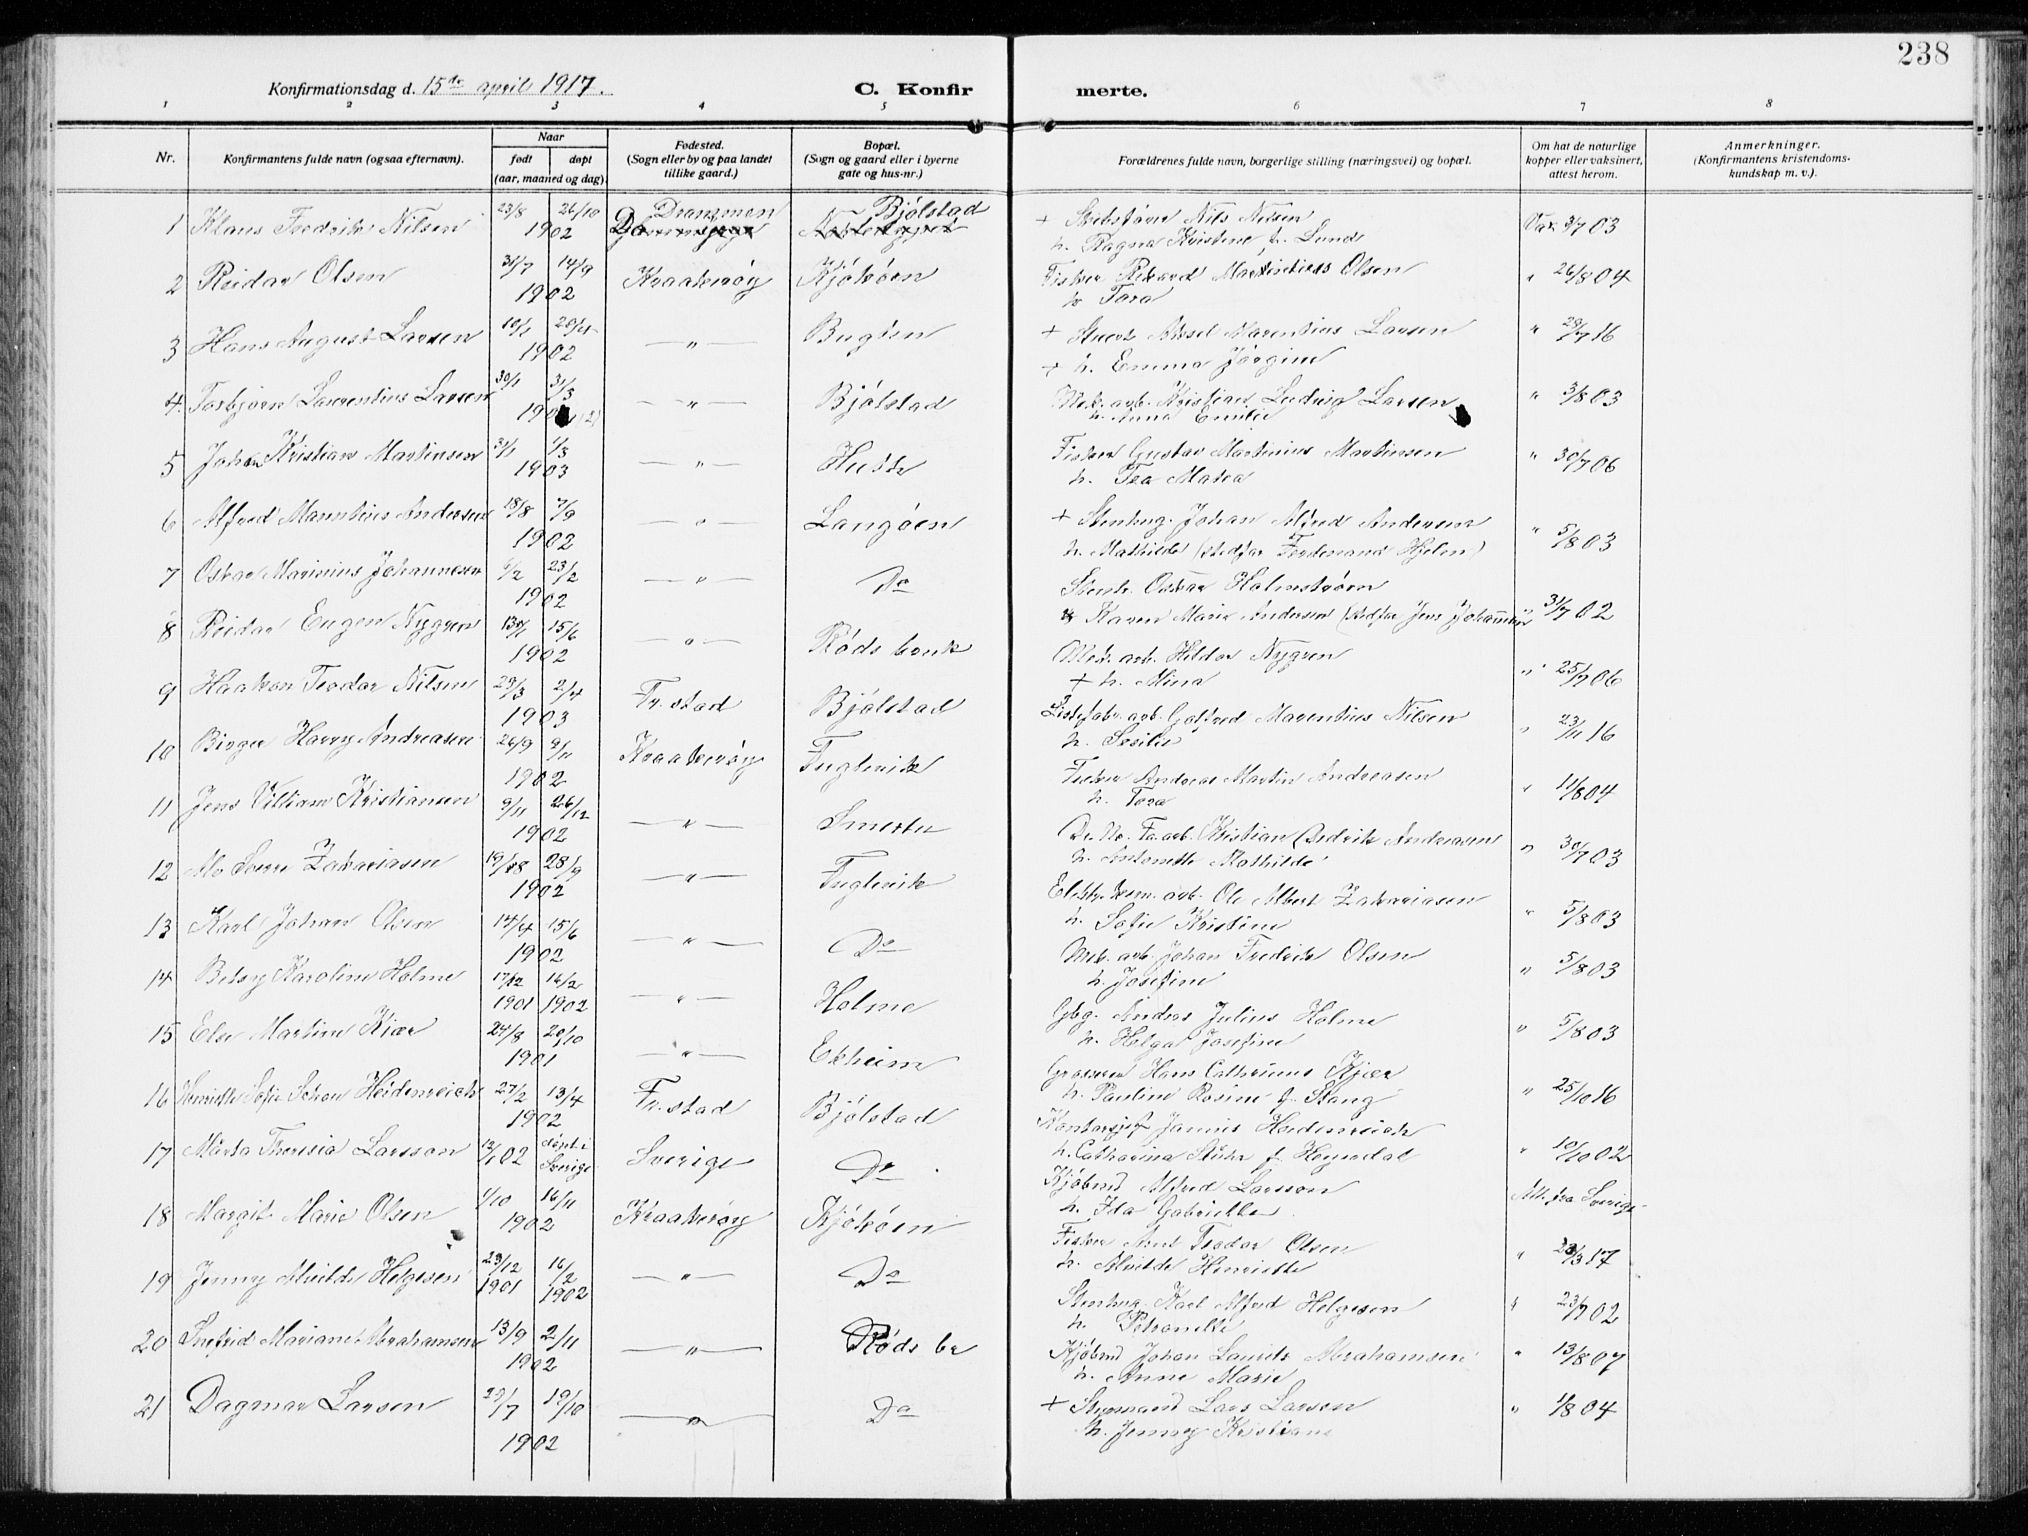 238
Konfirmationsdag d. 15de april 1917.
C. Konfirmerte.
1 2 3 4 5 6 7 8
Nr.
Konfirmantens fulde navn (ogsaa efternavn).
Naar
født døpt
(aar, maaned og dag).
Fødested.
(Sogn eller by og paa landet
tillike gaard.)
Bopæl.
(Sogn og gaard eller i byerne
gate og hus-nr.)
Forældrenes fulde navn, borgerlige stilling (næringsvei) og bopæl.
Om hat de naturlige
kopper eller vaksinert,
attest herom.
Anmerkninger.
(Konfirmantens kristendoms-
kundskap m. v.).
1 Klaus Fredrik Nilsen 23/8 26/10 1902 Drammen Bjølstad
+ Skibsfører Nils Nilsen Vax. 3/7 03
h. Ragna Kristine f. Lund
2 Reidar Olsen 31/7 14/9 1902 Kraakerøy Kjøkøen
Fisker Rikard Olsen " 26/8 04
h. Tora
3 Hans August Larsen 1902 — " — Bugøen
+ Axsel Marentius Larsen " 29/7 16
+ h. Emma Jørgine
4 Torbjørn Laurentius Larsen 30/1 31/3 190 (2) — " — Bjølstad
Mek. arb. Kristian Ludvig Larsen " 3/8 03
h. Anna Emilie
5 Johan Kristian Martinsen 31/1 1/3 1903 — " —
Fisker Gustav Martinius Martinsen " 30/7 06
h. Tea
6 Alfred Marentius Andersen 18/8 7/9 1902 — " — Langøen
+ Stenhug. Johan Alfred Andersen " 5/8 03
h. Mathilde (stedfar Ferdenand Hjelm)
7 Oskar Marinius Johannesen 6/2 23/2 1902 — " — Do
Stenh. Oskar Holmstrøm
Karen Marie Andersen (stedfar Jens Johannesen) 31/7 02
8 Reidar Eugen Nygren 15/6 1902 — " — Røds bruk
Mek. arb. Hildor Nygren " 25/7 06
+ h. Mina
9 Haakon Teodor Nilsen 29/3 2/4 1903 Fr.stad Bjølstad
Listefabr. arb. Golfred Marentius Nilsen " 23/11 16
h. Sesilie
10 Birger Harry Andreasen 26/9 9/11 1902 Kraakerøy Fuglevik
Fisker Andreas Martin Andreasen " 11/8 04
h. Tora
11 Jens Villiam Kristiansen 9/11 26/12 1902 — " — Smerta
De No. Fa. arb. Kristian Fredrik Andreasen " 30/7 03
h. Antonette Mathilde
12 Alv Sverre Zakariasen 19/8 28/9 1902 — " — Fuglevik
arb. Ole Albert Zakariasen " 5/8 03
h. Sofie Kristine
13 Karl Johan Olsen 14/4 15/6 1902 — " — Do
Mek. arb. Johan Fredrik Olsen " 5/8 03
h. Josefine
14 Betsy Karoline Holme 17/12 1901 16/2 1902 — " — Holme
Gbg. Anders Julius Holme " 5/8 03
h. Helga Josefine
15 Else Martine Kiær 24/8 20/10 1901 — " — Ekheim
Grosserer Hans Kjær " 25/10 16
h. Pauline Rosine f. Stang
16 Henriette Sofie Schou Heidenreich 27/2 13/4 1902 Fr.stad Bjølstad
Kontorsjef Jannis Heidenreich " 10/10 02
h. Catharina Stuhr f. Heyerdal
17 Märta Theresia Larsson 13/1 02 døpt i Sverige Sverige Do
Kjøbmd Alfred Larsson Att. fra Sverige
h. Ida Gabriella
18 Margit Marie Olsen 1/10 16/11 1902 Kraakerøy Kjøkøen
Fisker Arnt Teodor Olsen " 28/3 17
h. Alvilde Henriette
19 Jenny Alvilde Helgesen 23/12 1901 16/2 1902 — " — Do
Stenhug. Karl Alfred Helgesen " 23/7 02
h. Petronelle
20 Snefrid Mariane Abrahamsen 13/9 2/11 1902 — " — Røds br
Kjøbmd Johan Laurits Abrahamsen " 13/8 07
h. Anne Marie
21 Dagmar Larsen 19/10 1902 — " — Do
+ Styrmand Lars Larsen " 1/8 04
h. Jenny Kristiane